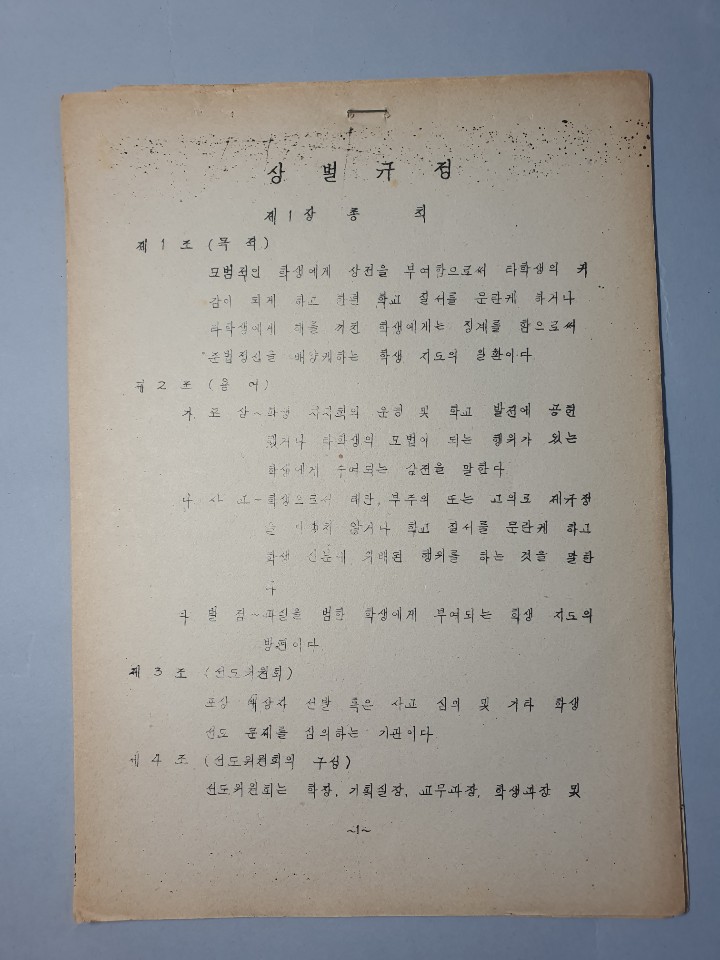 상 벌 규 정
제 1 장 총 칙
제 1 조 (목 적)
모범적인 학생에게 상전을 부여함으로써 타학생의 귀
감이 되게 하고 한편 학교 질서를 문란케 하거나
타학생에게 해를 끼친 학생에게는 징계를 함으로써
준법정신을 배양케하는 학생 지도의 일환이다
제 2 조 (용 어)
가 포 상~학생 자치회의 운영 및 학교 발전에 공헌
했거나 타학생의 모범이 되는 행위가 있는
학생에게 수여되는 상전을 말한다
나 사 고~학생으로서 태만, 부주의 또는 고의로 제규정
을 이행치 않거나 학교 질서를 문란케 하고
학생 신분에 위배된 행위를 하는 것을 말한
다
다 벌 점~과실을 범한 학생에게 부여되는 학생 지도의
방편이다
제 3 조 (선도위원회)
포상 해당자 선발 혹은 사고 심의 및 기타 학생
선도 문제를 심의하는 기관이다
제 4 조 (선도위원회의 구성)
선도위원회는 학장, 기획실장, 교무과장, 학생과장 및
~1~